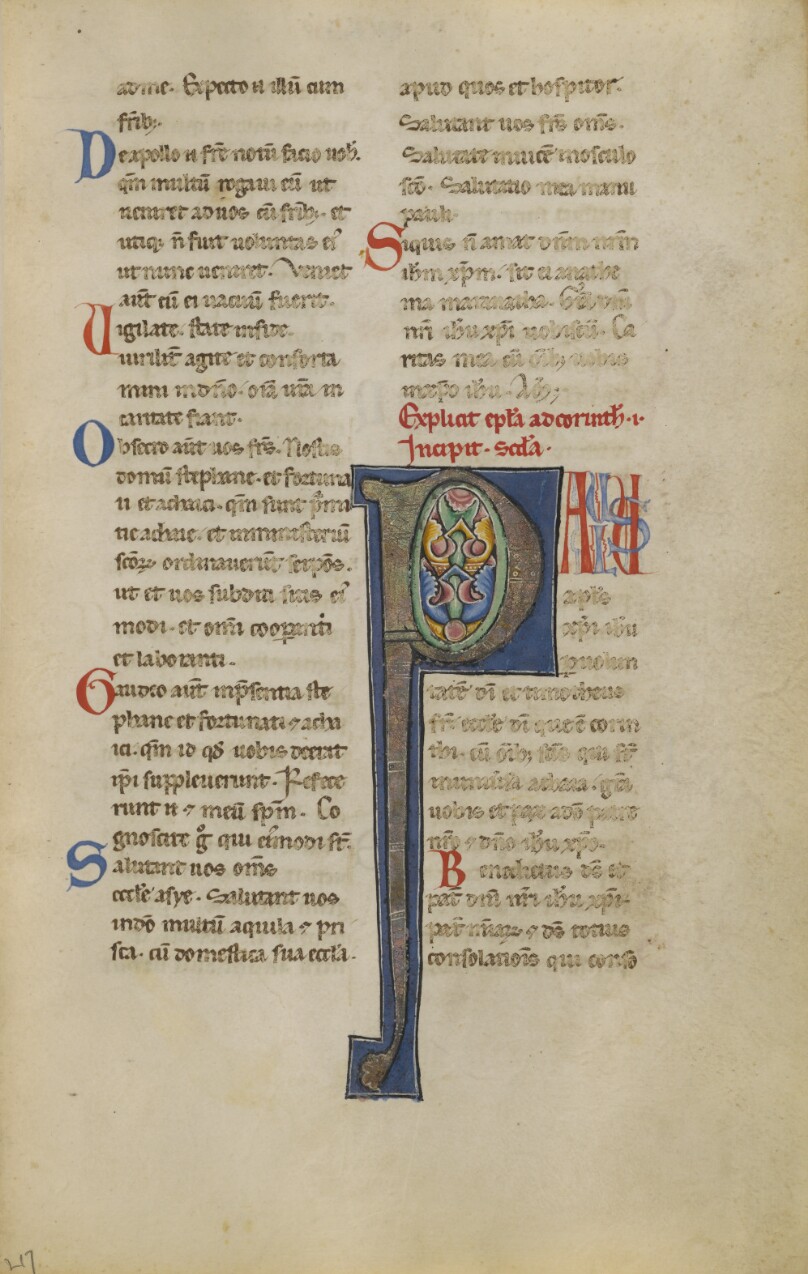 ad me. Expecto n̄ illū cum
frīb;.
De apollo n̄ frē notū facio uob̄.
qm̄ multū rogaui eū ut
ueniret ad uos cū frīb;. et
utiq; n̄ fuit uoluntas ei᾿
ut nunc ueniret. Veniet
aūt cū ei uacuū fuerit.
Uigilate. state in fide
uirilit̄ agite et conforta
mini in dn̄o. om̄ia ur̄a in
caritate fiant.
Obsecro aūt uos frs̄. Nostis
domū stephane. et fortuna
ti et achaici. qm̄ sunt p̄mi
tie achaie. et in ministeriū
sc̄oꝝ ordinauerūt se ip̄os.
ut et uos subditi sitis ei᾿
modi. et om̄i cooperanti
et laboranti.
Gaudeo aūt in p̄sentia ste
phane et fortunati ⁊ achi
ici. qm̄ id qd̄ uobis deerat
ip̄i suppleuerunt. Refece
runt n̄ ⁊ meū sp̄m. Co
gnoscite g̊ qui ei᾿modi st̄.
Salutant uos om̄s
eccl̄e asye. Salutant uos
in dō multū aquila ⁊ pri
sca. cū domestica sua eccl̄a.
apud quos et hospitor.
Salutant uos frs̄ om̄s.
Salutate inuicē in osculo
sc̄o. Salutatio mea manu
pauli.
Siquis n̄ amat dn̄m nr̄m
ih̄m xp̄m. sit ei anathe
ma maranatha. Gr̄a dn̄i
nr̄i ih̄u xp̄i uobiscū. Ca
ritas mea cū om̄ib; uobis
in xp̄o ih̄u. Am̄;
Explicit epl̄a ad corinth̄.i.
Incipit. scd̄a.
PAULUS
apl̄s
xp̄i ih̄u
p uolun
tatē di̅ et timotheus
fr̄ eccl̄e di̅ que ē corin
thi. cū om̄ib; sc̄is qui st̄
in uniuersa achaia. gr̄a
uobis et pax a dō patre
nr̄o ⁊ dn̄o ih̄u xp̄o.
Benedictus ds̄ et
pat̄ dn̄i nr̄i ih̄u xp̄i.
pat̄ mīaꝝ ⁊ ds̄ totius
consolationis qui conso
217